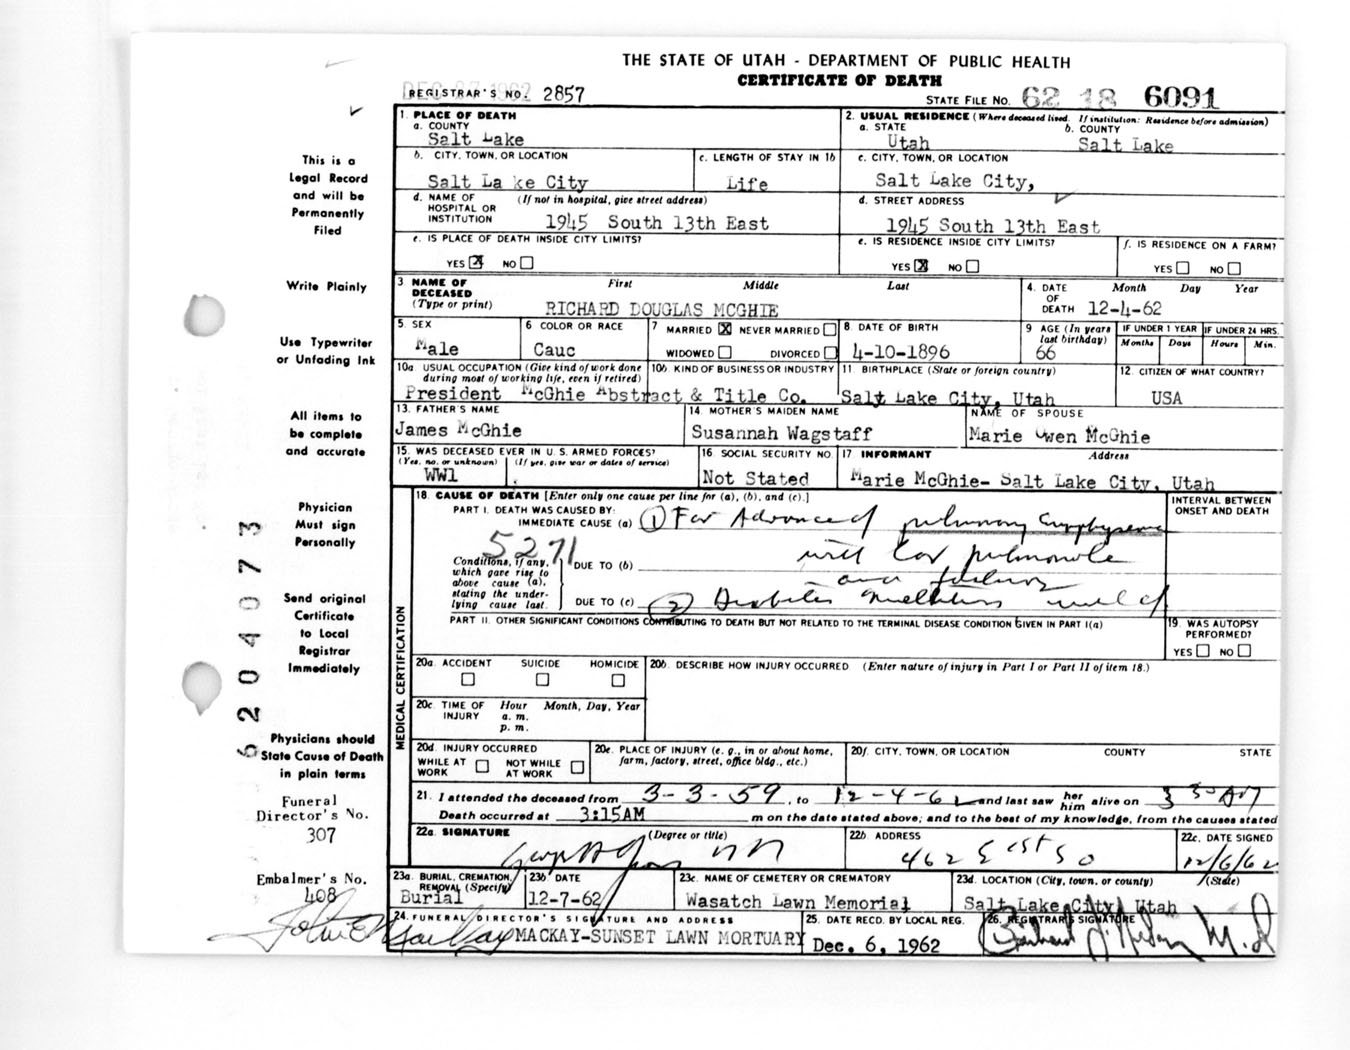 THE STATE OF UTAH - DEPARTMENT OF PUBLIC HEALTH
CERTIFICATE OF DEATH
REGISTRAR'S NO. 2857
STATE FILE NO. 62 18 6091
1. PLACE OF DEATH
a. COUNTY
Salt Lake
2. USUAL RESIDENCE (Where deceased lived. If institution: Residence before admission)
a. STATE
Utah
b. COUNTY
Salt Lake
b. CITY, TOWN, OR LOCATION
Salt La ke City
c. LENGTH OF STAY IN 1b
Life
c. CITY, TOWN, OR LOCATION
Salt Lake City,
d. NAME OF HOSPITAL OR INSTITUTION
(If not in hospital, give street address)
1945 South 13th East
d. STREET ADDRESS
1945 South 13th East
e. IS PLACE OF DEATH INSIDE CITY LIMITS?
YES X NO
e. IS RESIDENCE INSIDE CITY LIMITS?
YES X NO
f. IS RESIDENCE ON A FARM?
YES NO
3 NAME OF DECEASED
(Type or print)
First Middle Last
RICHARD DOUGLAS MCGHIE
4. DATE OF DEATH
Month Day Year
12-4-62
5. SEX
Male
6 COLOR OR RACE
Cauc
7 MARRIED X NEVER MARRIED
WIDOWED DIVORCED
8. DATE OF BIRTH
4-10-1896
9 AGE (In years last birthday)
66
IF UNDER 1 YEAR
Months Days
IF UNDER 24 HRS.
Hours Min.
10a. USUAL OCCUPATION (Give kind of work done during most of working life, even if retired)
President
10b. KIND OF BUSINESS OR INDUSTRY
McGhie Abstract & Title Co.
11. BIRTHPLACE (State or foreign country)
Salt Lake City, Utah
12. CITIZEN OF WHAT COUNTRY?
USA
13. FATHER'S NAME
James McGhie
14 MOTHER'S MAIDEN NAME
Susannah Wagstaff
NAME OF SPOUSE
Marie Owen McGhie
15. WAS DECEASED EVER IN U.S. ARMED FORCES?
(Yes, no, or unknown) (If yes, give war or dates of service)
WW1
16. SOCIAL SECURITY NO.
Not Stated
17 INFORMANT Address
Marie McGhie- Salt Lake City, Utah
18. CAUSE OF DEATH [Enter only one cause per line for (a), (b), and (c).]
PART I. DEATH WAS CAUSED BY:
IMMEDIATE CAUSE (a) (1) Far Advanced pulmonary Emphysema
INTERVAL BETWEEN ONSET AND DEATH
5271
Conditions, if any, which gave rise to above cause (a), stating the underlying cause last.
DUE TO (b)
with Cor pulmonale
and failure
DUE TO (c) (2) Diabetes Mellitus mild
PART II. OTHER SIGNIFICANT CONDITIONS CONTRIBUTING TO DEATH BUT NOT RELATED TO THE TERMINAL DISEASE CONDITION GIVEN IN PART I(a)
19. WAS AUTOPSY PERFORMED?
YES NO
20a. ACCIDENT SUICIDE HOMICIDE
20b. DESCRIBE HOW INJURY OCCURRED (Enter nature of injury in Part I or Part II of item 18.)
20c. TIME OF INJURY
Hour Month, Day, Year
a. m.
p. m.
20d. INJURY OCCURRED
WHILE AT WORK NOT WHILE AT WORK
20e. PLACE OF INJURY (e. g., in or about home, farm, factory, street, office bldg., etc.)
20f. CITY, TOWN, OR LOCATION COUNTY STATE
21. I attended the deceased from 3-3-59, to 12-4-62 and last saw her him alive on
Death occurred at 3:15AM m on the date stated above; and to the best of my knowledge, from the causes stated
22a. SIGNATURE (Degree or title)
22b. ADDRESS
462 E 1st So
22c. DATE SIGNED
12/6/62
23a. BURIAL, CREMATION, REMOVAL (Specify)
Burial
23b DATE
12-7-62
23c. NAME OF CEMETERY OR CREMATORY
Wasatch Lawn Memorial
23d. LOCATION (City, town, or county) (State)
Salt Lake City, Utah
24. FUNERAL DIRECTOR'S SIGNATURE AND ADDRESS
MACKAY-SUNSET LAWN MORTUARY
25. DATE RECD. BY LOCAL REG.
Dec. 6, 1962
26. REGISTRAR'S SIGNATURE
MEDICAL CERTIFICATION
This is a
Legal Record
and will be
Permanently
Filed
Write Plainly
Use Typewriter
or Unfading Ink
All items to
be complete
and accurate
Physician
Must sign
Personally
Send original
Certificate
to Local
Registrar
Immediately
Physicians should
State Cause of Death
in plain terms
Funeral
Director's No.
307
Embalmer's No.
408
6204073